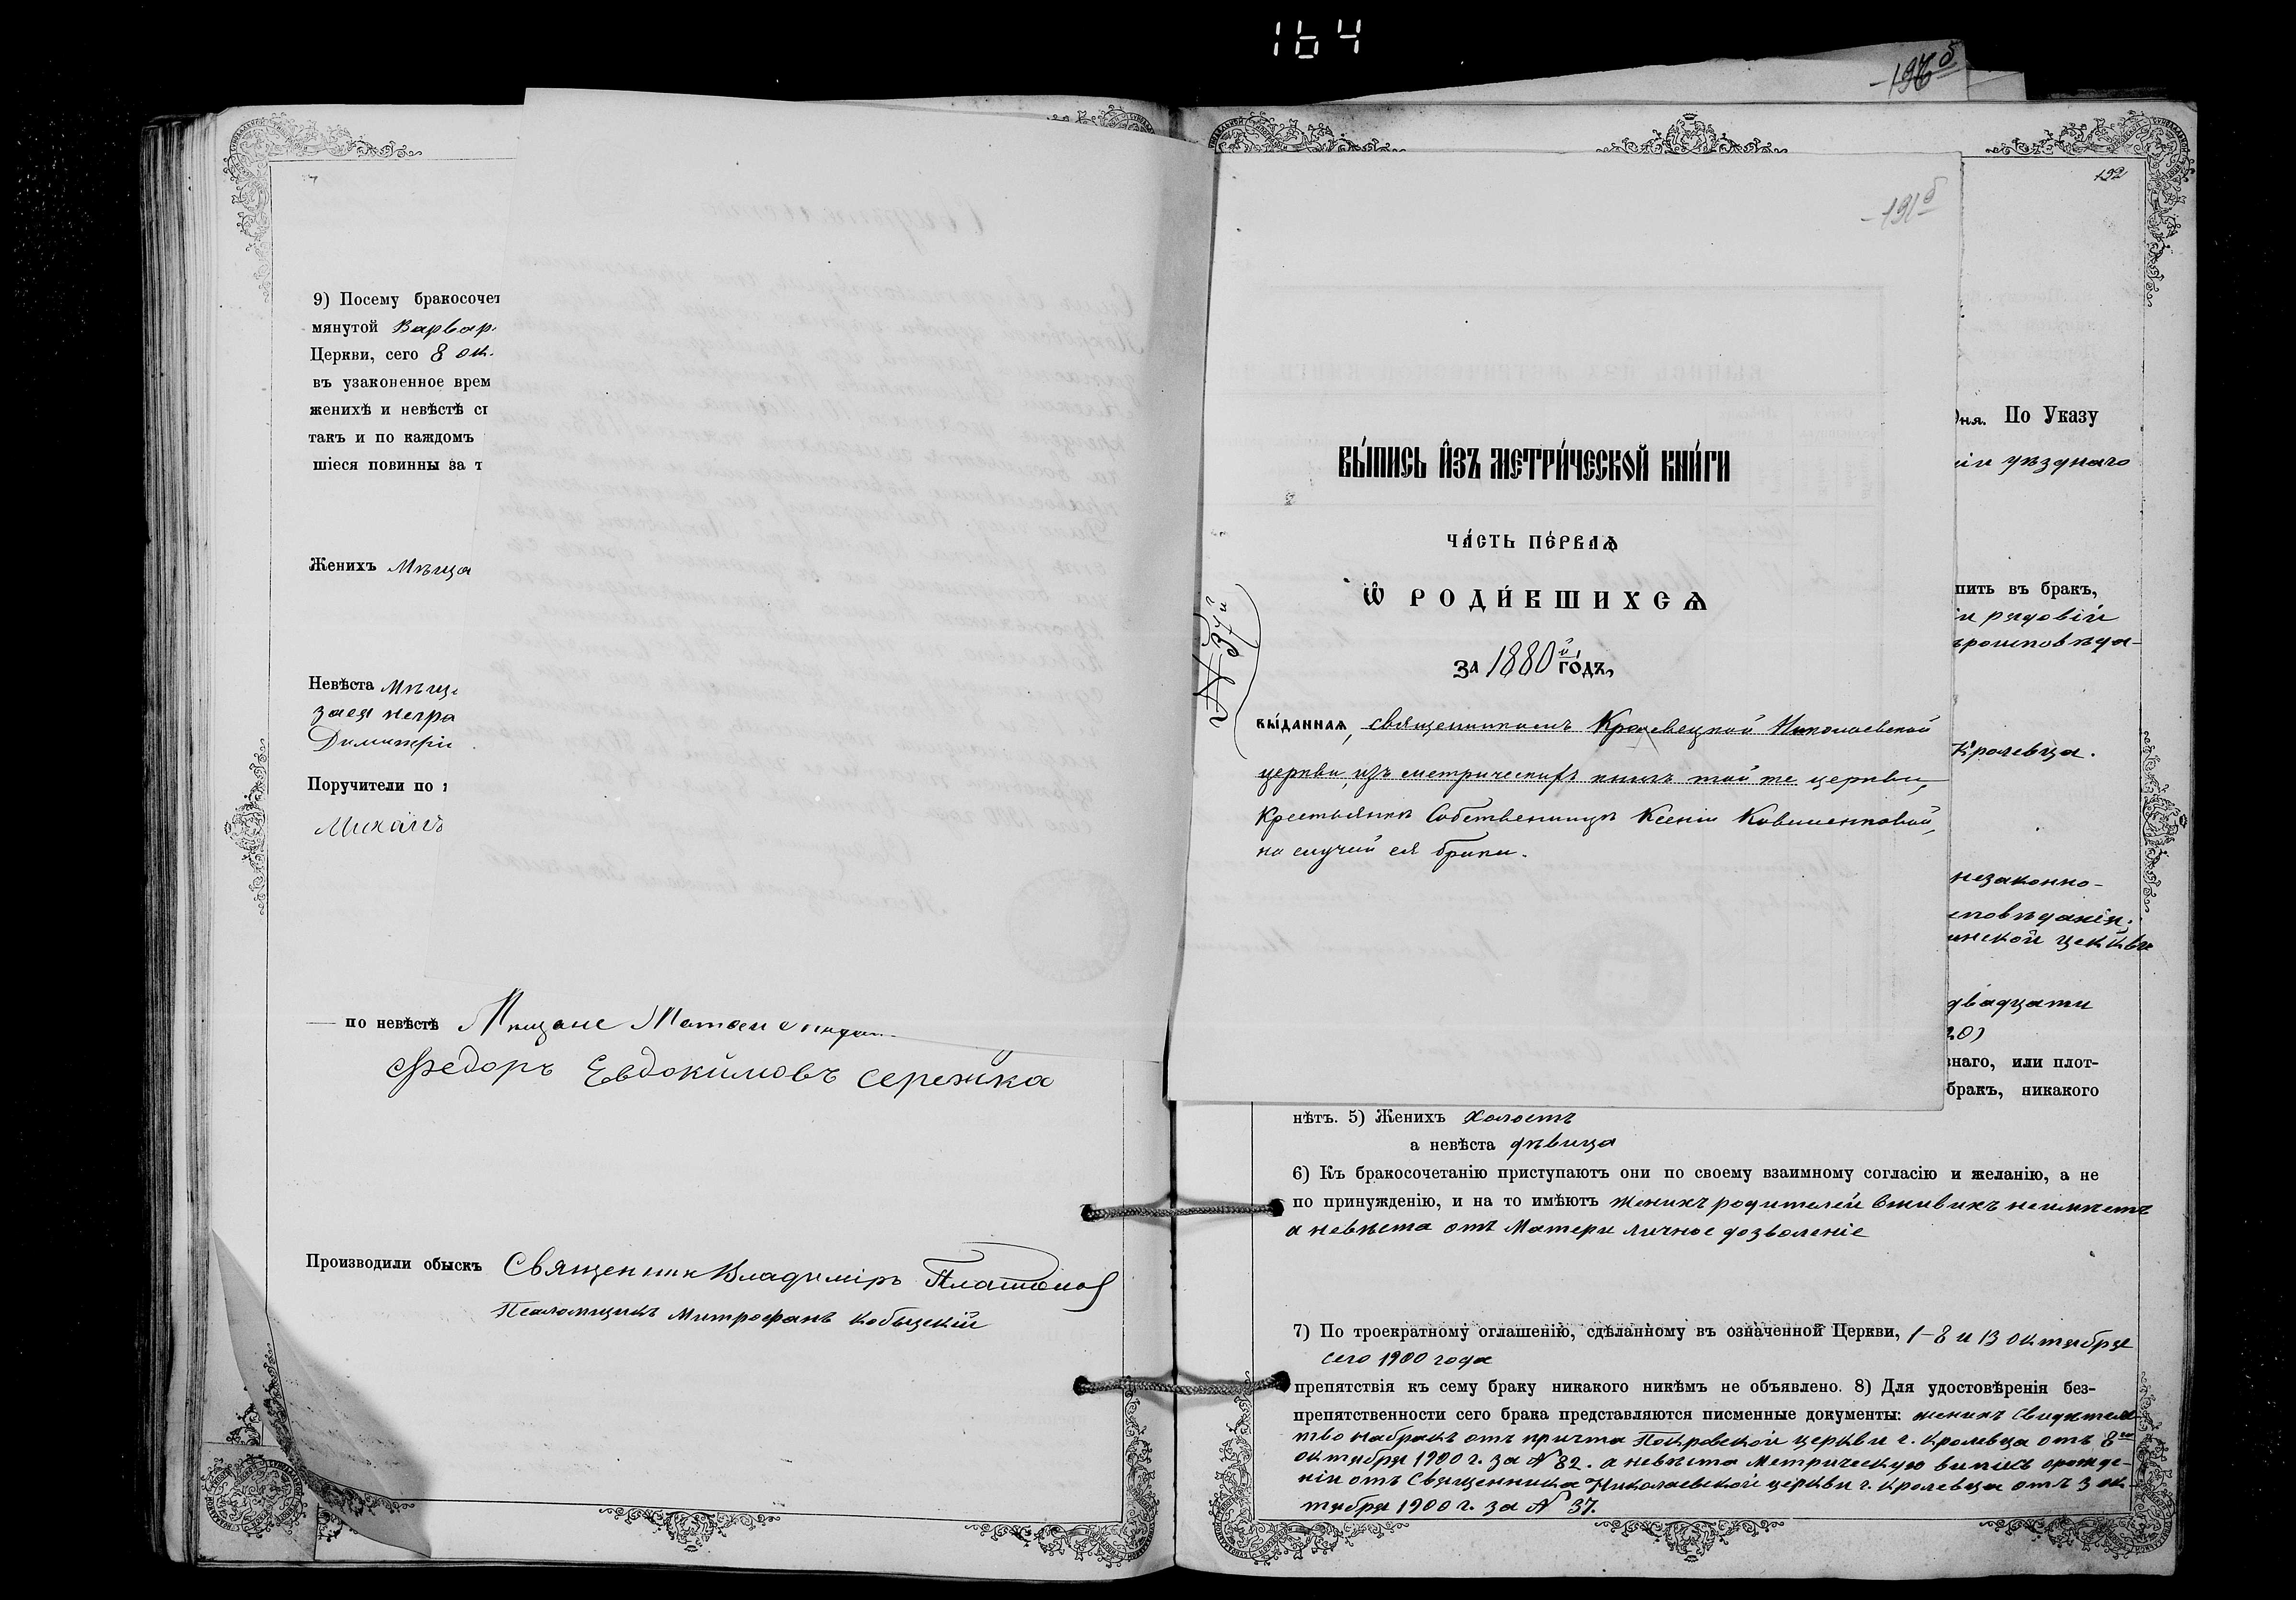 164
9) Посему бракосочет
мянутой Варвар
Церкви, сего 8 ок
въ узаконенное врем
женихѣ и невѣстѣ сп
такъ и по каждомъ
шіеся повинны за т
Женихъ Мѣща
Невѣста Мѣщ
заея негра
Димитрі
Поручители по
Михаилъ
по невѣстѣ Мѣщане
Федоръ Евдокимовъ Сережка
Производили обыскъ Священникъ Владиміръ Платоновъ
Псаломщикъ Митрофанъ Кобыцкій
196б
191б
ВЫ́ПИСЬ И҆ЗЪ МЕТРИ́ЧЕСКОЙ КНИ́ГИ
ЧА́СТЬ ПЕ́РВАѦ
Ѡ҆ РОДИ́ВШИХСѦ
ЗА 1880й ГО́ДЪ,
№ 37й
ВЫ́ДАННАѦ, священникомъ Кролевецкой Николаевской
церкви, изъ метрическихъ книгъ той же церкви,
Крестьянкѣ Собственницѣ Ксеніи Ковшенковой,
на случай ея брака.
192
дня. По Указу
іи уѣзднаго
пить въ бракъ,
и рядовій
вроисповѣда-
Кролевца.
незаконно-
повѣданія,
инской церкви
двадцати
20)
наго, или плот-
бракъ, никакого
нѣтъ. 5) Женихъ холостъ
а невѣста дѣвица
6) Къ бракосочетанію приступаютъ они по своему взаимному согласію и желанію, а не
по принужденію, и на то имѣютъ женихъ родителей вживихъ неимѣетъ
а невѣста отъ Матери личное дозволеніе
7) По троекратному оглашенію, сдѣланному въ означенной Церкви, 1–8 и 13 октября
сего 1900 года
препятствія къ сему браку никакого никѣмъ не объявлено. 8) Для удостовѣренія без-
препятственности сего брака представляются писменные документы: женихъ Свидѣтель-
тво набракъ отъ причта Покровской церкви г. Кролевца отъ 8го
октября 1900 г. за № 82. а невѣста Метрическую випись орожде-
ніи отъ Священника Николаевской церкви г. Кролевца отъ 3 ок-
тября 1900 г. за № 37.